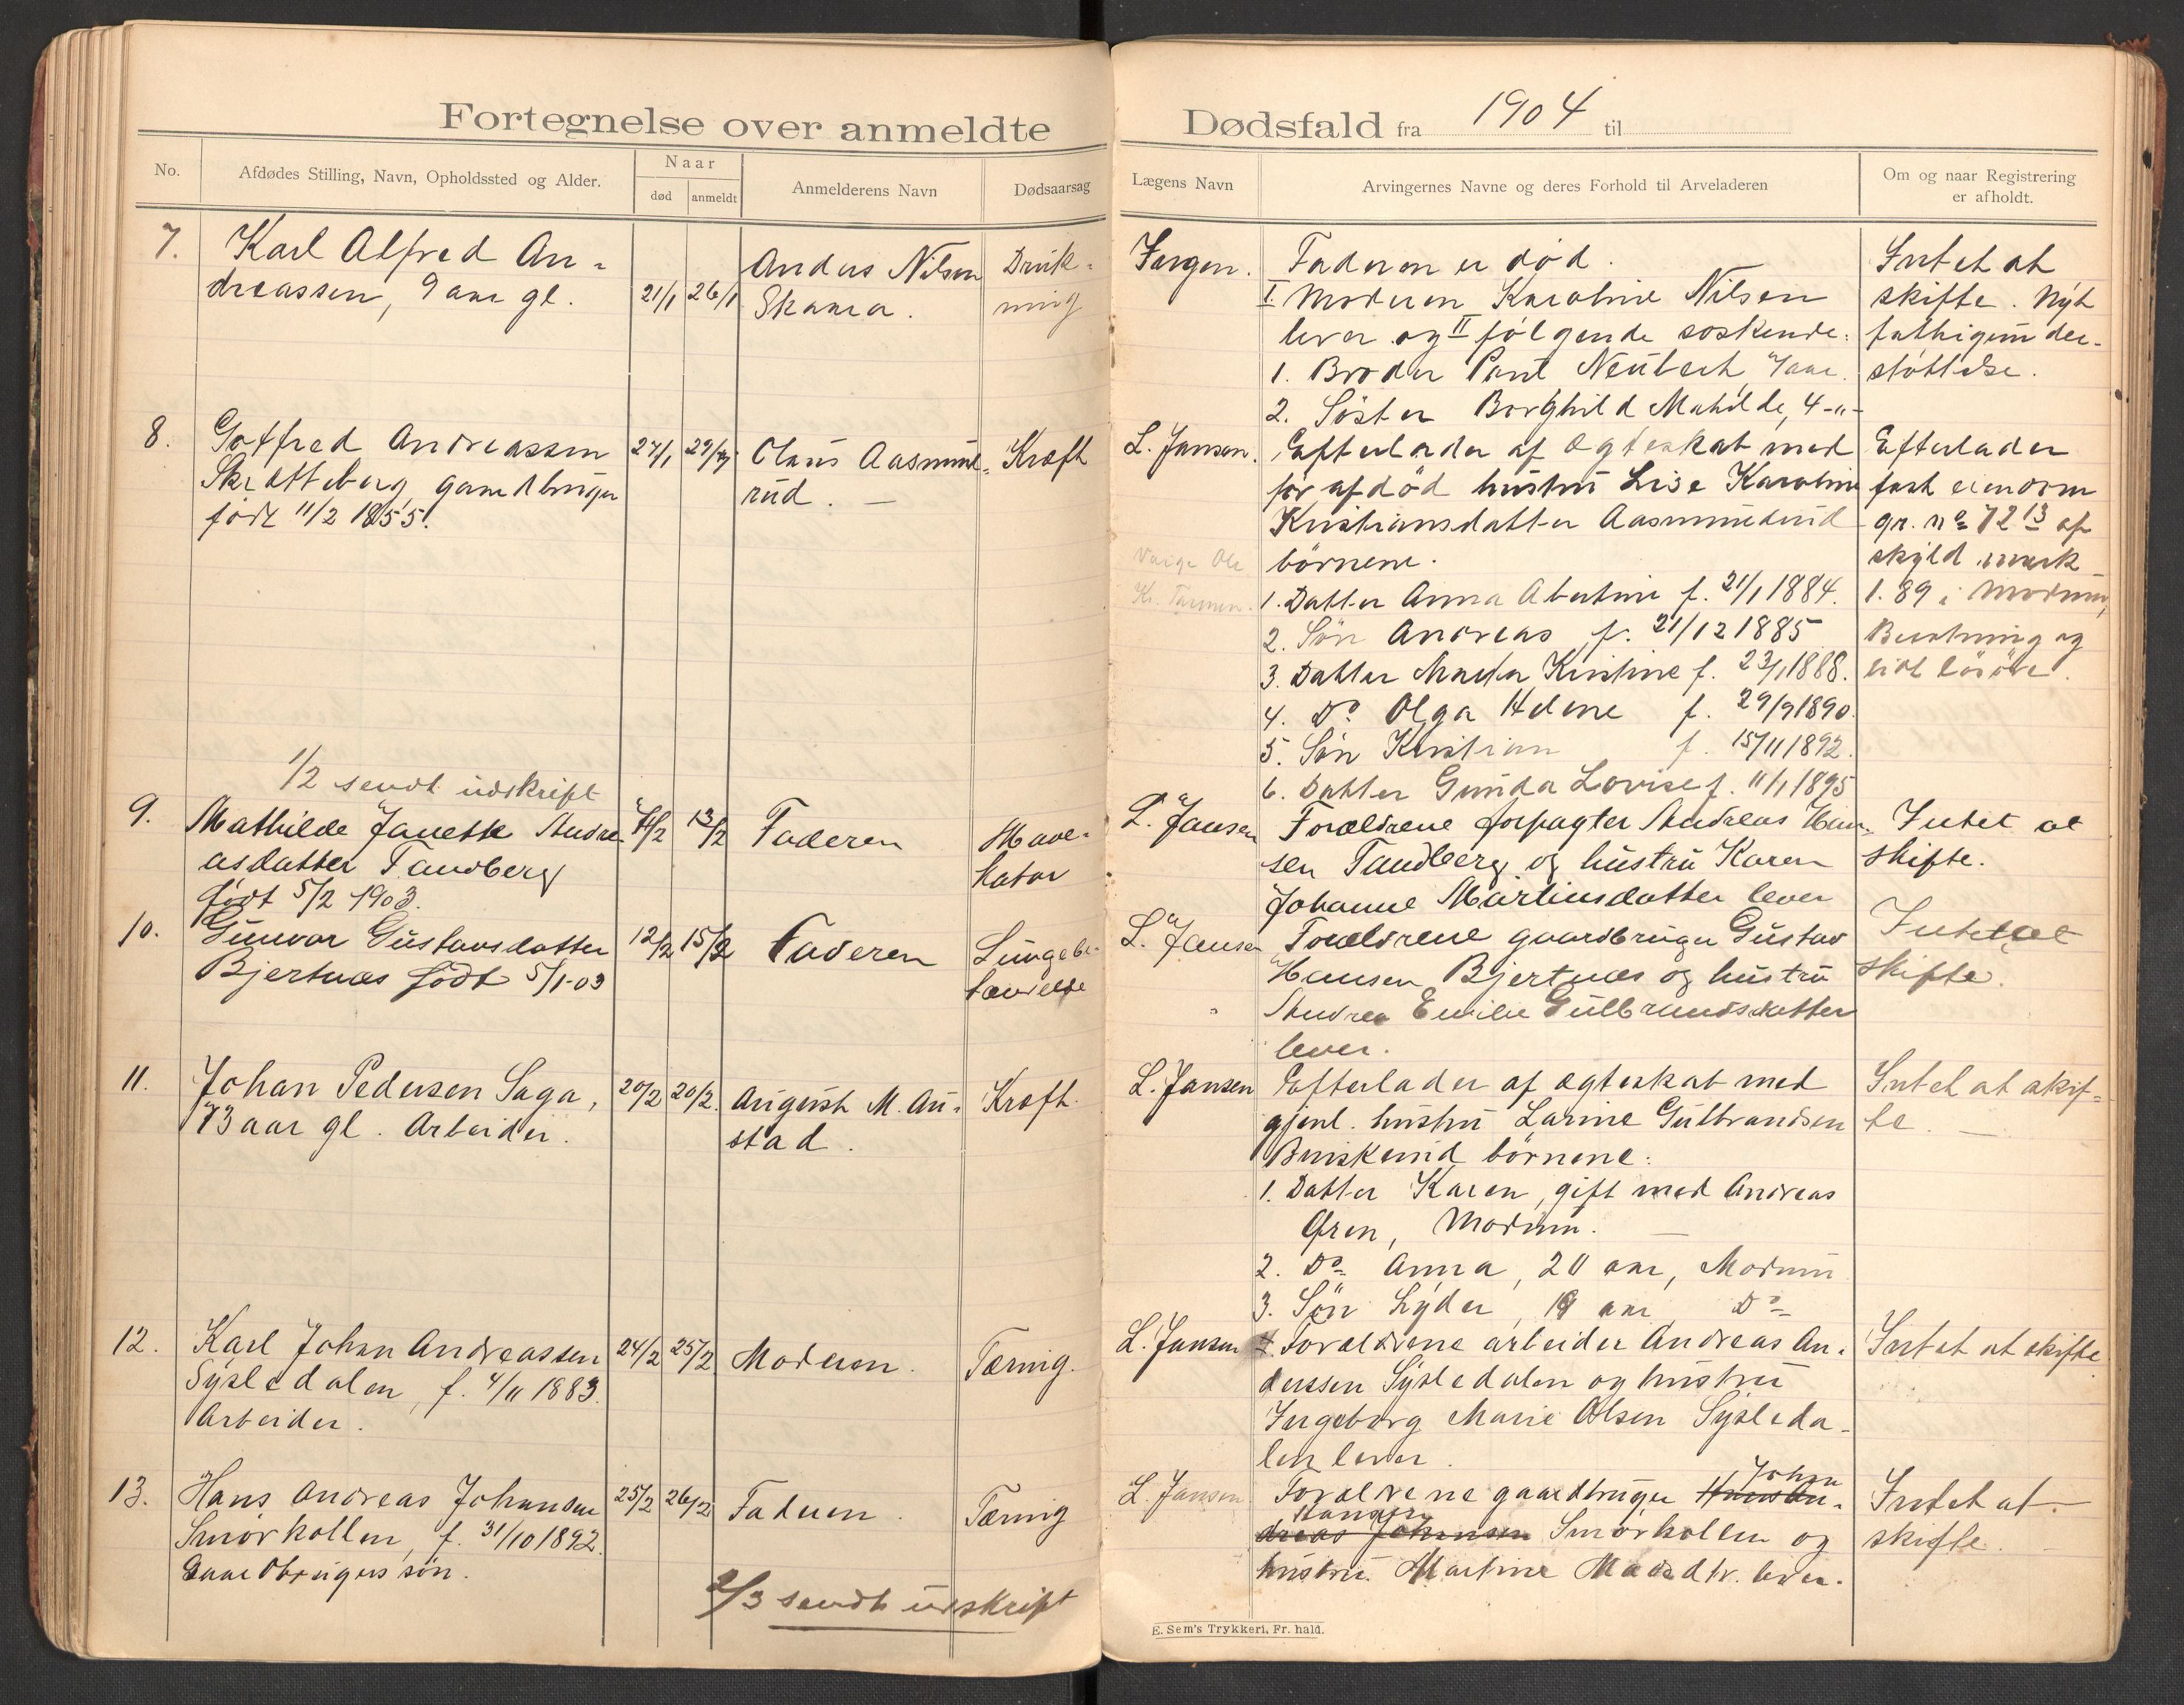 Fortegnelse over anmeldte
No.
Afdødes Stilling, Navn, Opholdssted og Alder.
Naar
død
anmeldt
Anmelderens Navn
Dødsaarsag
7.
Karl Alfred An-
dreassen, 9 aar gl.
21/1
26/1
Anders Nilsen
Skaara.
Druk-
ning
8.
Gotfred Andreassen
Skretteberg, gaardbruger
født 11/2 1855.
27/1
Olaus Aasmund-
rud. —
Kræft
1/2 sendt udskrift
9.
Mathilde Janette Andre-
asdatter Tandberg
født 5/2 1903.
13/2
Faderen
Mave-
katar
10.
Gunvor Gustavsdatter
Bjertnæs født 5/1-03
12/2
15/2
Faderen
Lungebe-
tændelse
11.
Johan Pedersen Saga,
73 aar gl. Arbeider.
20/2
20/2.
August M. Au-
stad.
Kræft.
12.
Karl Johan Andreassen
Sysledalen, f. 4/11 1883.
Arbeider.
24/2
25/2
Moderen.
Tæring.
13.
Hans Andreas Johansen
Smørkollen, f. 31/10 1892.
Gaardbrugers søn.
25/2
26/2
Faderen.
Tæring
2/3 sendt udskrift
Dødsfald fra 1904 til
Lægens Navn
Arvingernes Navne og deres Forhold til Arveladeren
Om og naar Registrering
er afholdt.
Ingen.
Faderen er død.
I Moderen Karoline Nilsen
lever og II følgende søskende:
1. Broder Paul Neubert, 7 aar.
2. Søster Borghild Mathilde, 4 -"-
Intet at
skifte. Nyt
fattigunder-
støttelse.
L. Jansen.
Efterlader af ægteskab med
før afdød hustru Lise Karoline
Kristiansdatter Aasmundrud
børnene.
1. Datter Anna Abertine f. 21/1 1884.
2. Søn Andreas f. 21/12 1885
3. Datter Marta Kristine f. 23/1 1888.
4. Do Olga Helene f. 29/9 1890.
5. Søn Kristian f. 15/11 1892.
6. Datter Gunda Lovise f. 11/1 1895
Værge Ole
Kr.
Efterlader
fast eiendom
gr. no 72 13 af
skyld mark
1.89 i Modum,
Besætning og
lidt løsøre.
L. Jansen
Forældrene forpagter Andreas Han-
sen Tandberg og hustru Karen
Johanne Martinsdatter lever
Intet at
skifte.
L. Jansen
Forældrene gaardbruger Gustav
Hansen Bjertnæs og hustru
Andrea Emilie Gulbrandsdatter
lever.
Intet at
skifte.
L. Jansen
Efterlader af ægteskab med
gjenl. hustru Larine Gulbrandsen
Buskerud børnene:
1. Datter Karen, gift med Andreas
Øren, Modum. —
2. Do Anna, 20 aar, Modum
3. Søn Lyder, 19 aar Do
Intet at skif-
te. —
L. Jansen
Forældrene arbeider Andreas An-
derssen Sysledalen og hustru
Ingeborg Marie Olsen Sysleda-
len lever.
Intet at skifte
L. Jansen
Forældrene gaardbruger Hans An- Johan
dreas Johansen Hansen Smørkollen og
hustru Martine Madsdtr. lever.
Intet at
skifte. —
E. Sem's Trykkeri, Fr. hald.